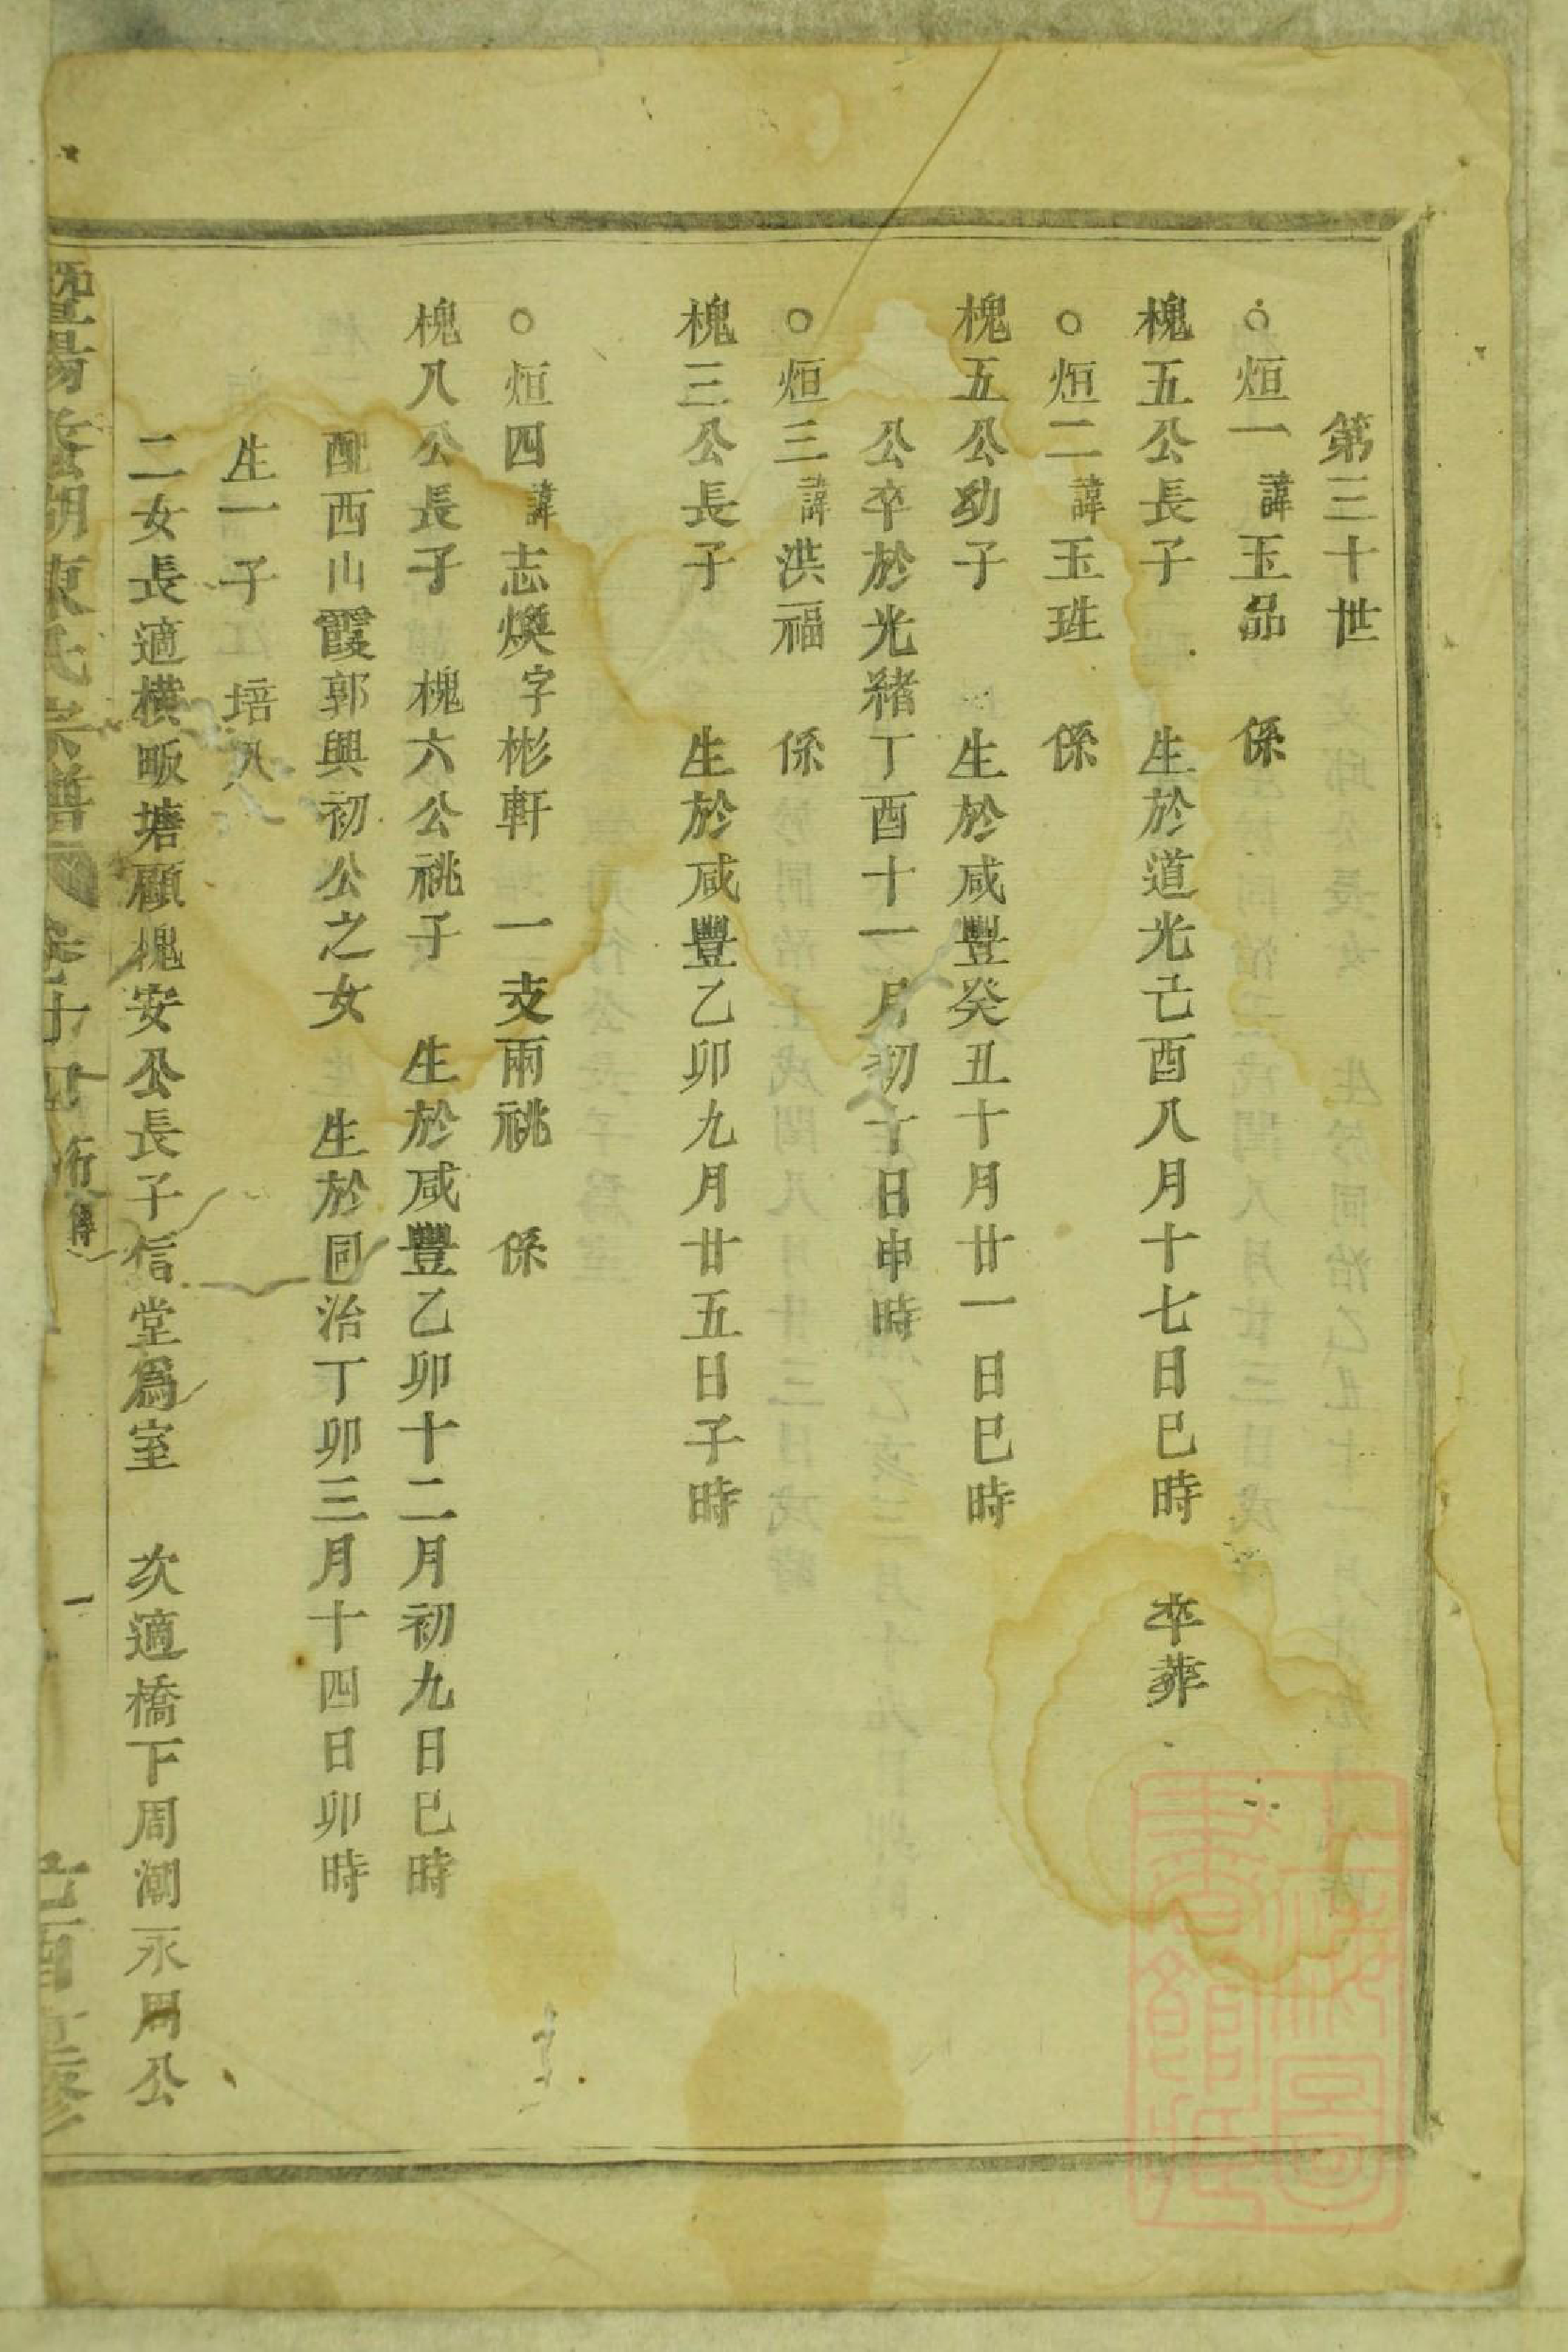 第三十世
○烜一諱玉品 係
槐五公長子 生於道光己酉八月十七日巳時 卒葬
○烜二諱玉珄 係
槐五公幼子 生於咸豐癸丑十月廿一日巳時
公卒於光緒丁酉十一月初十日申時
○烜三諱洪福 係
槐三公長子 生於咸豐乙卯九月廿五日子時
○烜四諱志煥字彬軒 一支兩祧 係
槐八公長子 槐六公祧子 生於咸豐乙卯十二月初九日巳時
配西山霞郭興初公之女 生於同治丁卯三月十四日卯時
生一子 培八
二女長適橫畈塘顧槐安公長子信堂爲室 次適橋下周潮永周公
暨陽 湖東氏宗譜 卷十四 行傳 一 己酉 修
上海圖書館藏